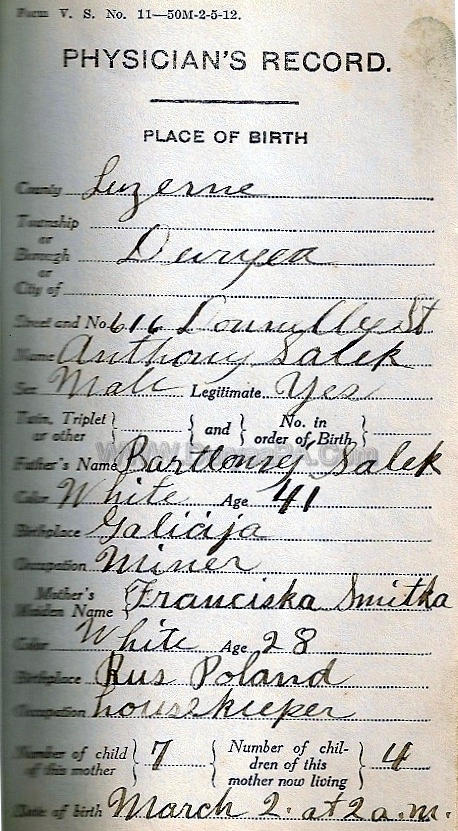 Form V. S. No. 11—50M-2-5-12.
PHYSICIAN'S RECORD.
PLACE OF BIRTH
County Luzerne
Township
or
Borough Duryea
or
City of
Street and No. 616 Donnelly St
Name Anthony Salek
Sex Male Legitimate Yes
Twin, Triplet or other } { and } No. in order of Birth {
Father's Name Bartlomej Salek
Color White Age 41
Birthplace Galicija
Occupation Miner
Mother's Maiden Name { Franciska Smitka
Color White Age 28
Birthplace Rus Poland
Occupation housekeeper
Number of child of this mother } 7 { Number of children of this mother now living } 4
Date of birth March 2. at 2 a.m.